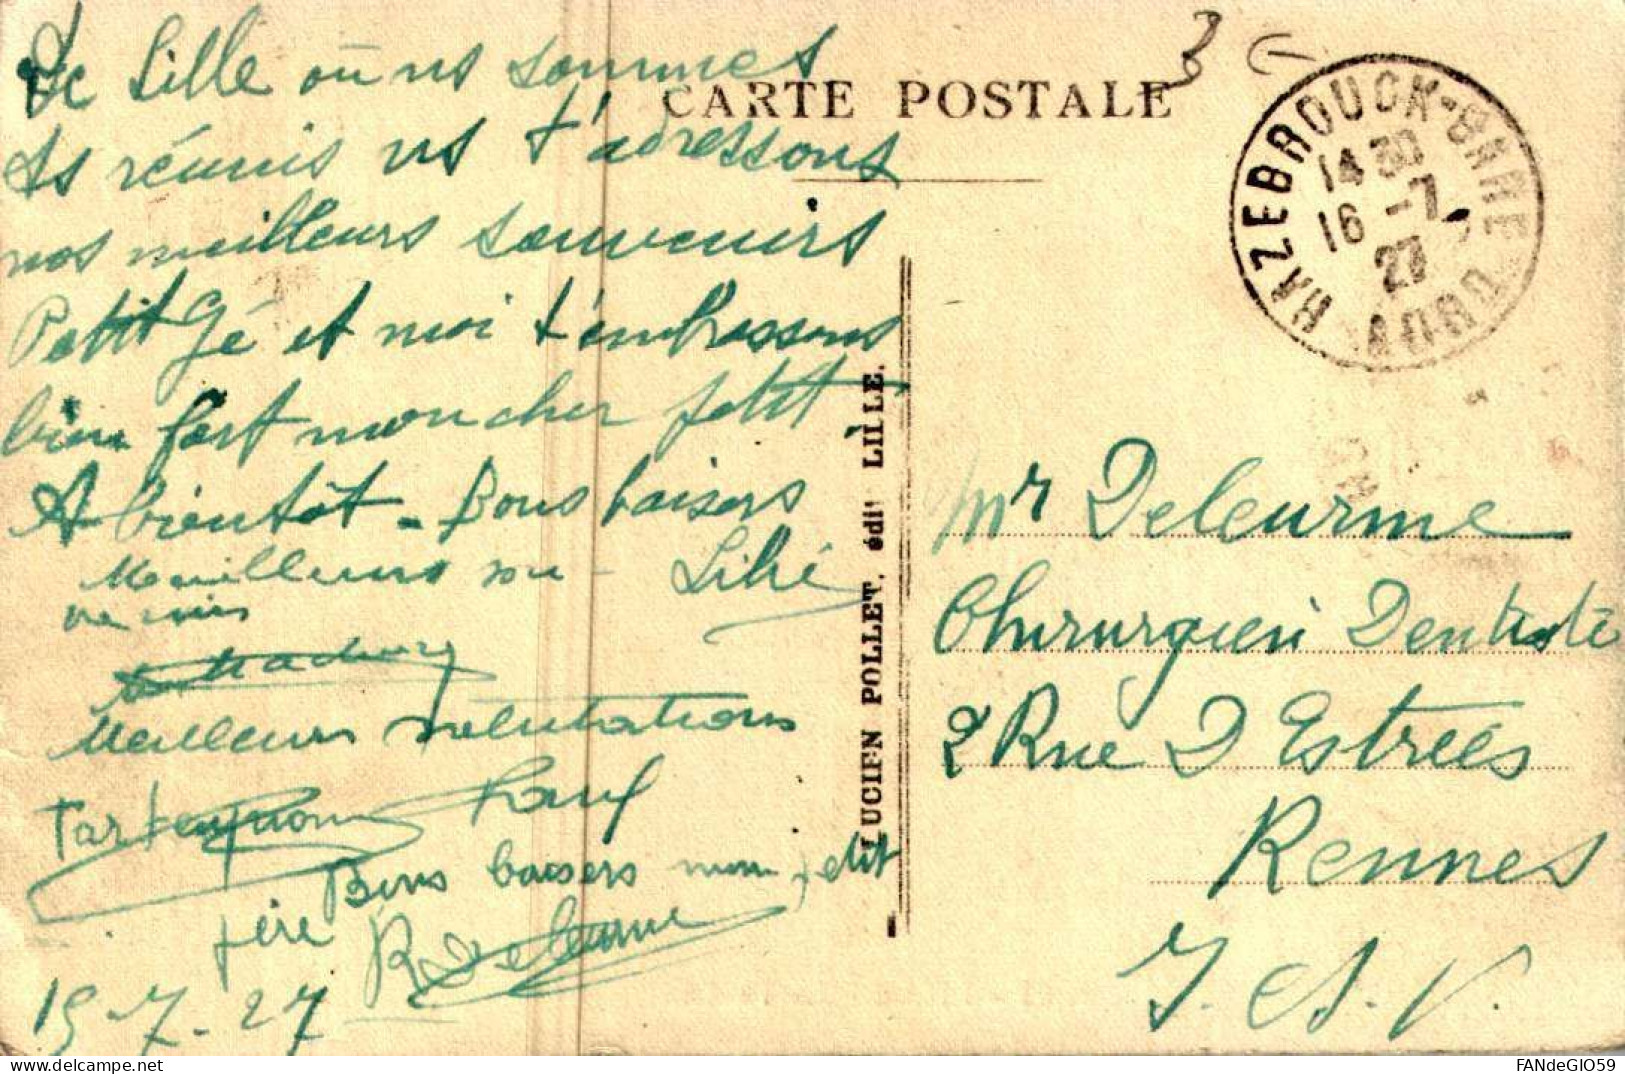 De Lille où ns sommes
ts réunis ns t'adressons
nos meilleurs souvenirs
Petit Gé et moi t'embrassons
bien fort mon cher petit
A bientôt - Bons baisers
Meilleurs sou - Lihé
venirs
Meilleures salutations
Bons baisers mon petit
père R Deleurme
15-7-27
CARTE POSTALE
3
LUCIEN POLLET, édit LILLE.
HAZEBROUCK-GARE
14 30
16 -7
27
NORD
Mr Deleurme
Chirurgien Dentiste
2 Rue D Estrées
Rennes
I. et V.
FANdeGIO59